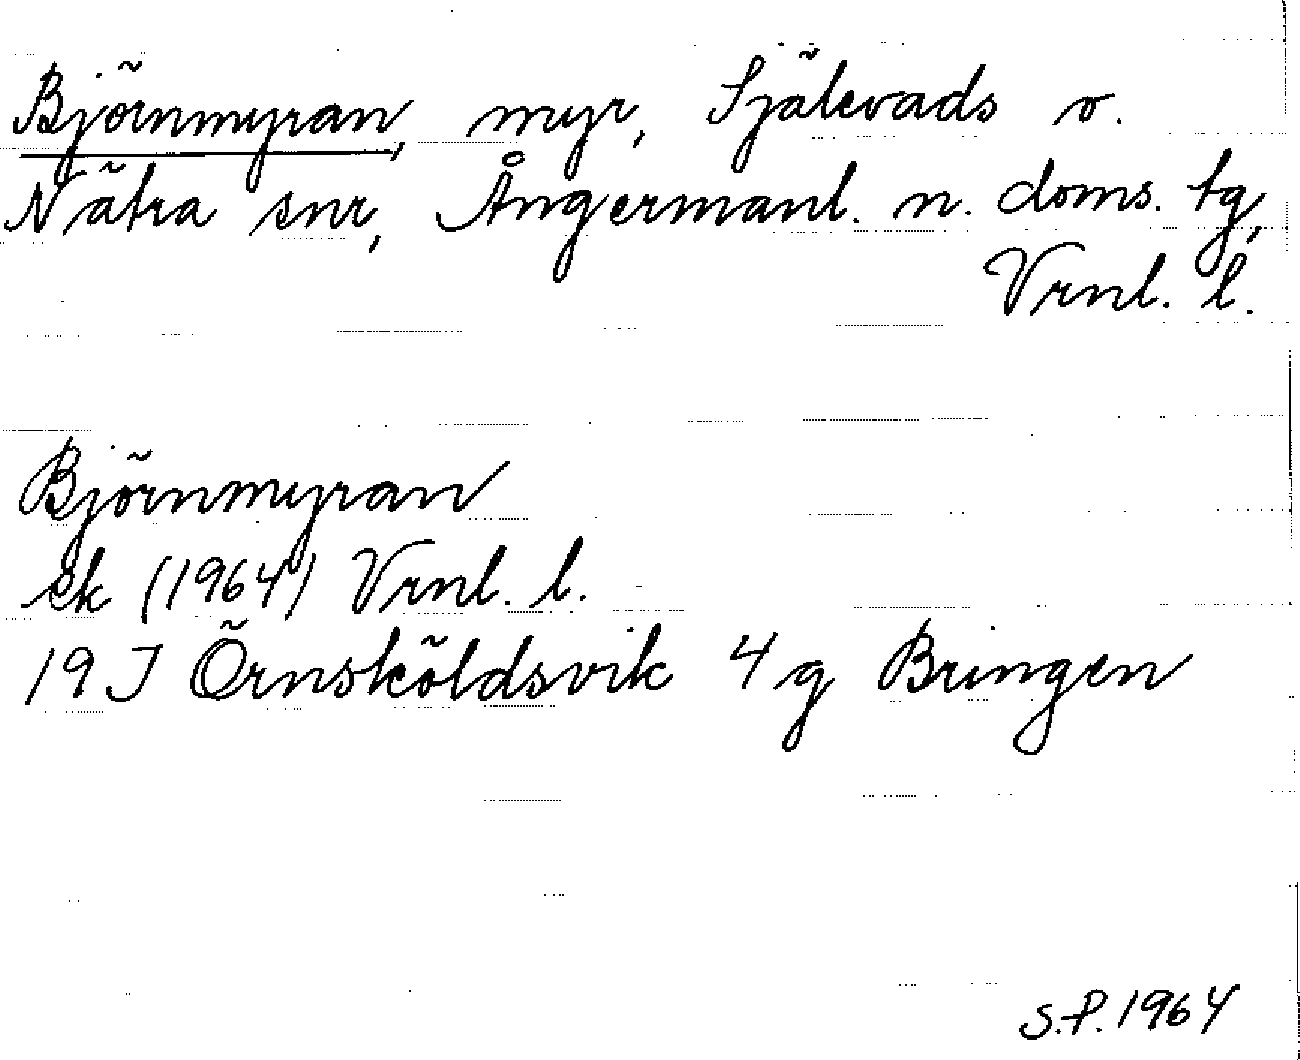 Björnmyran, myr, Själevads o.
Nätra snr, Ångermanl. n. doms. tg,
Vrnl. l.
Björnmyran
ek (1964) Vrnl. l.
19 J Örnsköldsvik 4 g Bringen
S.P. 1964